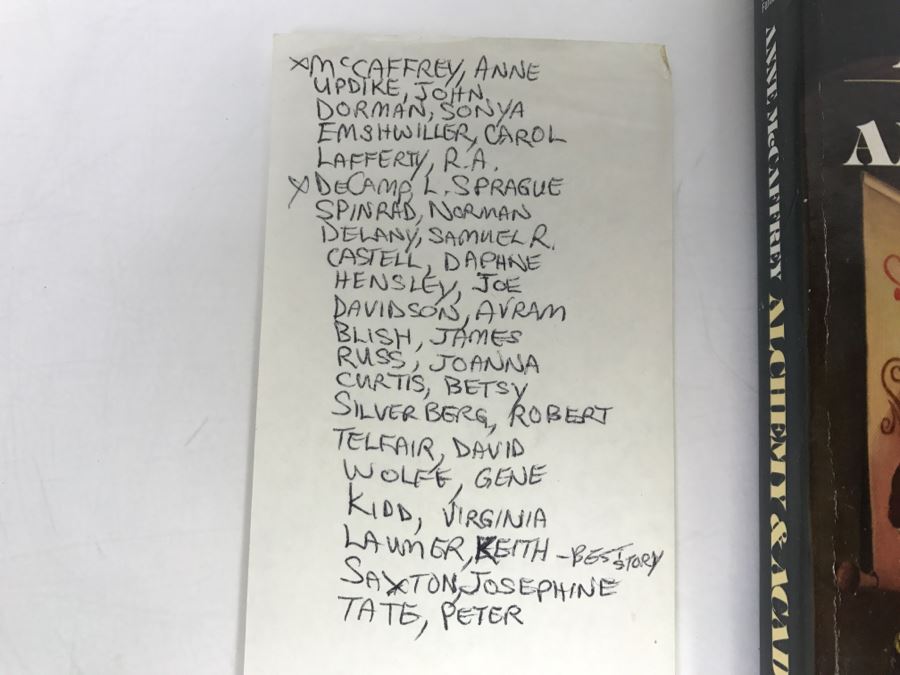 xMcCAFFREY, ANNE
UPDIKE, JOHN
DORMAN, SONYA
EMSHWILLER, CAROL
LAFFERTY, R.A.
xDECAMP, L. SPRAGUE
SPINRAD, NORMAN
DELANY, SAMUEL R.
CASTELL, DAPHNE
HENSLEY, JOE
DAVIDSON, AVRAM
BLISH, JAMES
RUSS, JOANNA
CURTIS, BETSY
SILVERBERG, ROBERT
TELFAIR, DAVID
WOLFE, GENE
KIDD, VIRGINIA
LAUMER, KEITH - BEST STORY
SAXTON, JOSEPHINE
TATE, PETER
ANNE McCAFFREY ALCHEMY & ACAD
A